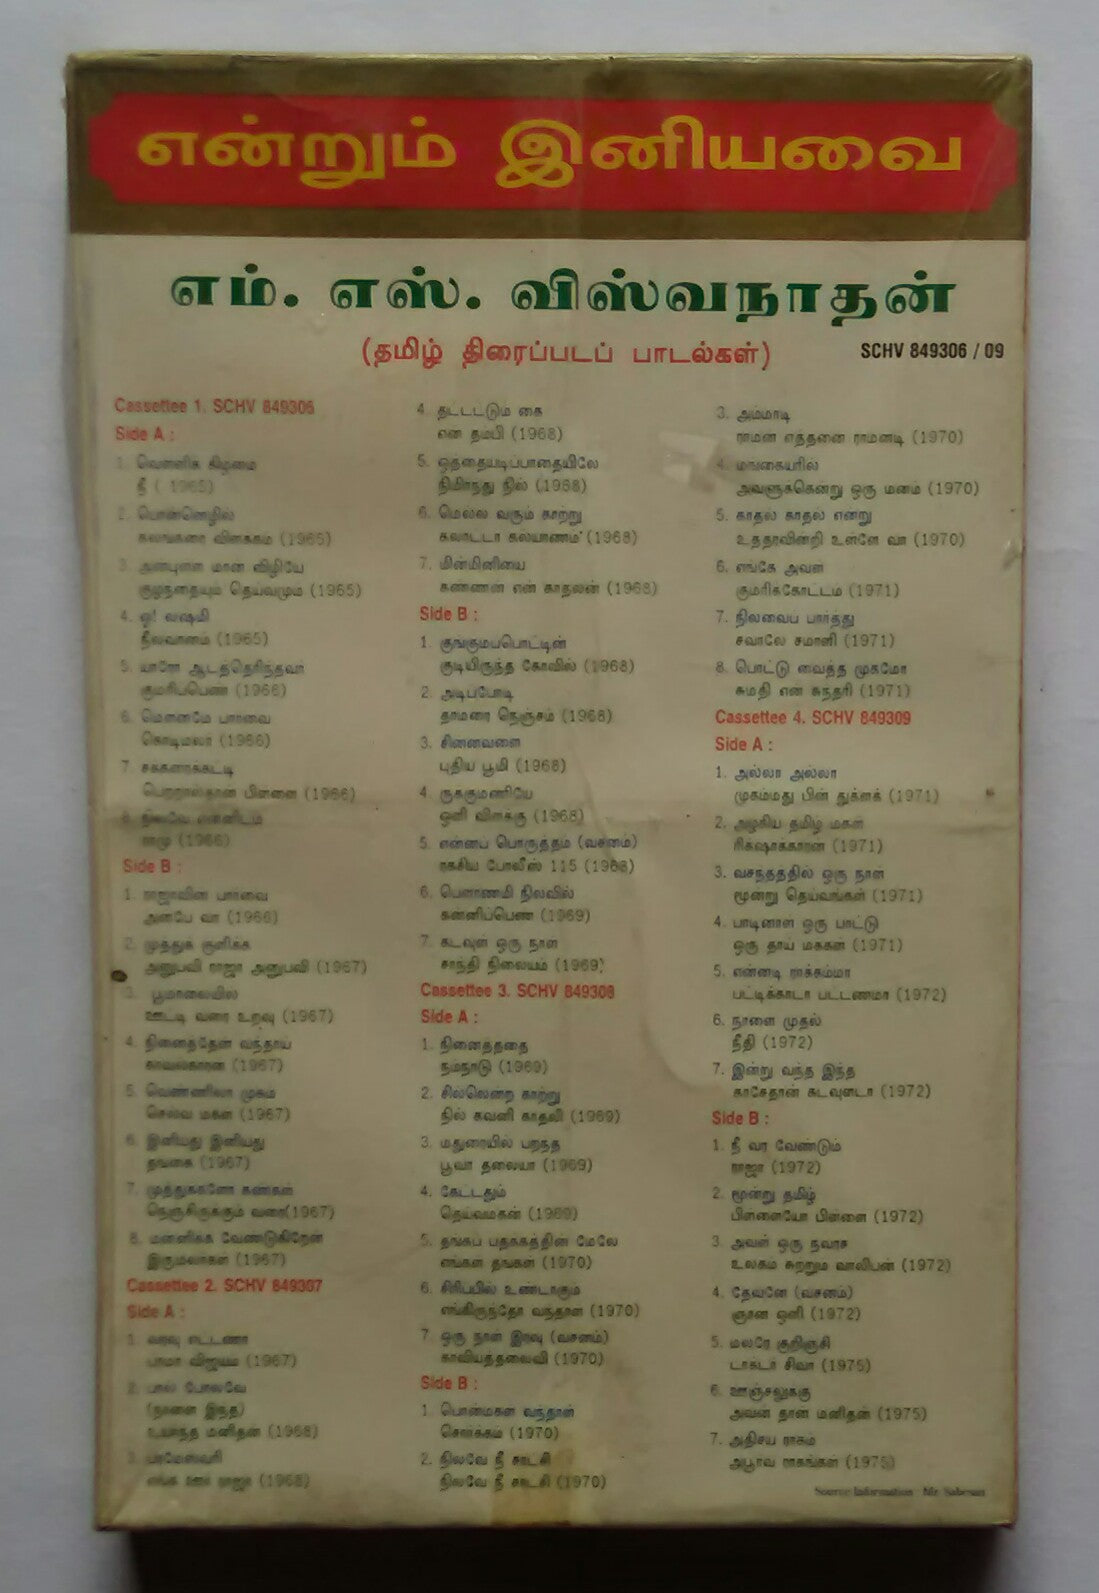 என்றும் இனியவை
எம். எஸ். விஸ்வநாதன்
(தமிழ் திரைப்படப் பாடல்கள்)
SCHV 849306 / 09
Cassettee 1. SCHV 849306
Side A :
1. வெள்ளிக் கிழமை
நீ ( 1965)
2. பொன்னெழில்
கலங்கரை விளக்கம் (1965)
3. அன்புள்ள மான் விழியே
குழந்தையும் தெய்வமும் (1965)
4. ஓ! லஷ்மி
நீலவானம் (1965)
5. யாரோ ஆடத்தெரிந்தவர்
குமரிப்பெண் (1966)
6. மௌனமே பார்வை
கொடிமலர் (1966)
7. சக்கரைக்கட்டி
பெற்றால்தான் பிள்ளை (1966)
8. நிலவே என்னிடம்
ராமு (1966)
Side B :
1. ராஜாவின் பார்வை
அன்பே வா (1966)
2. முத்துக் குளிக்க
அனுபவி ராஜா அனுபவி (1967)
3. பூமாலையில்
ஊட்டி வரை உறவு (1967)
4. நினைத்தேன் வந்தாய்
காவல்காரன் (1967)
5. வெண்ணிலா முகம்
செல்வ மகள் (1967)
6. இனியது இனியது
தங்கை (1967)
7. முத்துக்களோ கண்கள்
நெஞ்சிருக்கும் வரை(1967)
8. மன்னிக்க வேண்டுகிறேன்
இருமலர்கள் (1967)
Cassettee 2. SCHV 849307
Side A :
1. வரவு எட்டணா
பாமா விஜயம் (1967)
2. பால் போலவே
(நாளை இந்த)
உயர்ந்த மனிதன் (1968)
3. பரமேஸ்வரி
எங்க ஊர் ராஜா (1968)
4. தட்டட்டும் கை
என் தம்பி (1968)
5. ஒத்தையடிப்பாதையிலே
நிமிர்ந்து நில் (1968)
6. மெல்ல வரும் காற்று
கலாட்டா கல்யாணம் (1968)
7. மின்மினியை
கண்ணன் என் காதலன் (1968)
Side B :
1. குங்குமப்பொட்டின்
குடியிருந்த கோவில் (1968)
2. அடிப்போடி
தாமரை நெஞ்சம் (1968)
3. சின்னவளை
புதிய பூமி (1968)
4. ருக்குமணியே
ஒளி விளக்கு (1968)
5. என்னப் பொருத்தம் (வசனம்)
ரகசிய போலீஸ் 115 (1968)
6. பௌர்ணமி நிலவில்
கன்னிப்பெண் (1969)
7. கடவுள் ஒரு நாள்
சாந்தி நிலையம் (1969)
Cassettee 3. SCHV 849308
Side A :
1. நினைத்ததை
நம்நாடு (1969)
2. சில்லென்ற காற்று
நில் கவனி காதலி (1969)
3. மதுரையில் பறந்த
பூவா தலையா (1969)
4. கேட்டதும்
தெய்வமகன் (1969)
5. தங்கப் பதக்கத்தின் மேலே
எங்கள் தங்கள் (1970)
6. சிரிப்பில் உண்டாகும்
எங்கிருந்தோ வந்தாள் (1970)
7. ஒரு நாள் இரவு (வசனம்)
காவியத்தலைவி (1970)
Side B :
1. பொன்மகள் வந்தாள்
சொர்க்கம் (1970)
2. நிலவே நீ சாட்சி
நிலவே நீ சாட்சி (1970)
3. அம்மாடி
ராமன் எத்தனை ராமனடி (1970)
4. மங்கையரில்
அவளுக்கென்று ஒரு மனம் (1970)
5. காதல் காதல் என்று
உத்தரவின்றி உள்ளே வா (1970)
6. எங்கே அவள்
குமரிக்கோட்டம் (1971)
7. நிலவைப் பார்த்து
சவாலே சமாளி (1971)
8. பொட்டு வைத்த முகமோ
சுமதி என் சுந்தரி (1971)
Cassettee 4. SCHV 849309
Side A :
1. அல்லா அல்லா
முகம்மது பின் துக்ளக் (1971)
2. அழகிய தமிழ் மகள்
ரிக்ஷாக்காரன் (1971)
3. வசந்தத்தில் ஒரு நாள்
மூன்று தெய்வங்கள் (1971)
4. பாடினாள் ஒரு பாட்டு
ஒரு தாய் மக்கள் (1971)
5. என்னடி ராக்கம்மா
பட்டிக்காடா பட்டணமா (1972)
6. நாளை முதல்
நீதி (1972)
7. இன்று வந்த இந்த
காசேதான் கடவுளடா (1972)
Side B :
1. நீ வர வேண்டும்
ராஜா (1972)
2. மூன்று தமிழ்
பிள்ளையோ பிள்ளை (1972)
3. அவள் ஒரு நவரச
உலகம் சுற்றும் வாலிபன் (1972)
4. தேவனே (வசனம்)
ஞான ஒளி (1972)
5. மலரே குறிஞ்சி
டாக்டர் சிவா (1975)
6. ஊஞ்சலுக்கு
அவன் தான் மனிதன் (1975)
7. அதிசய ராகம்
அபூர்வ ராகங்கள் (1975)
Source Information Mr.